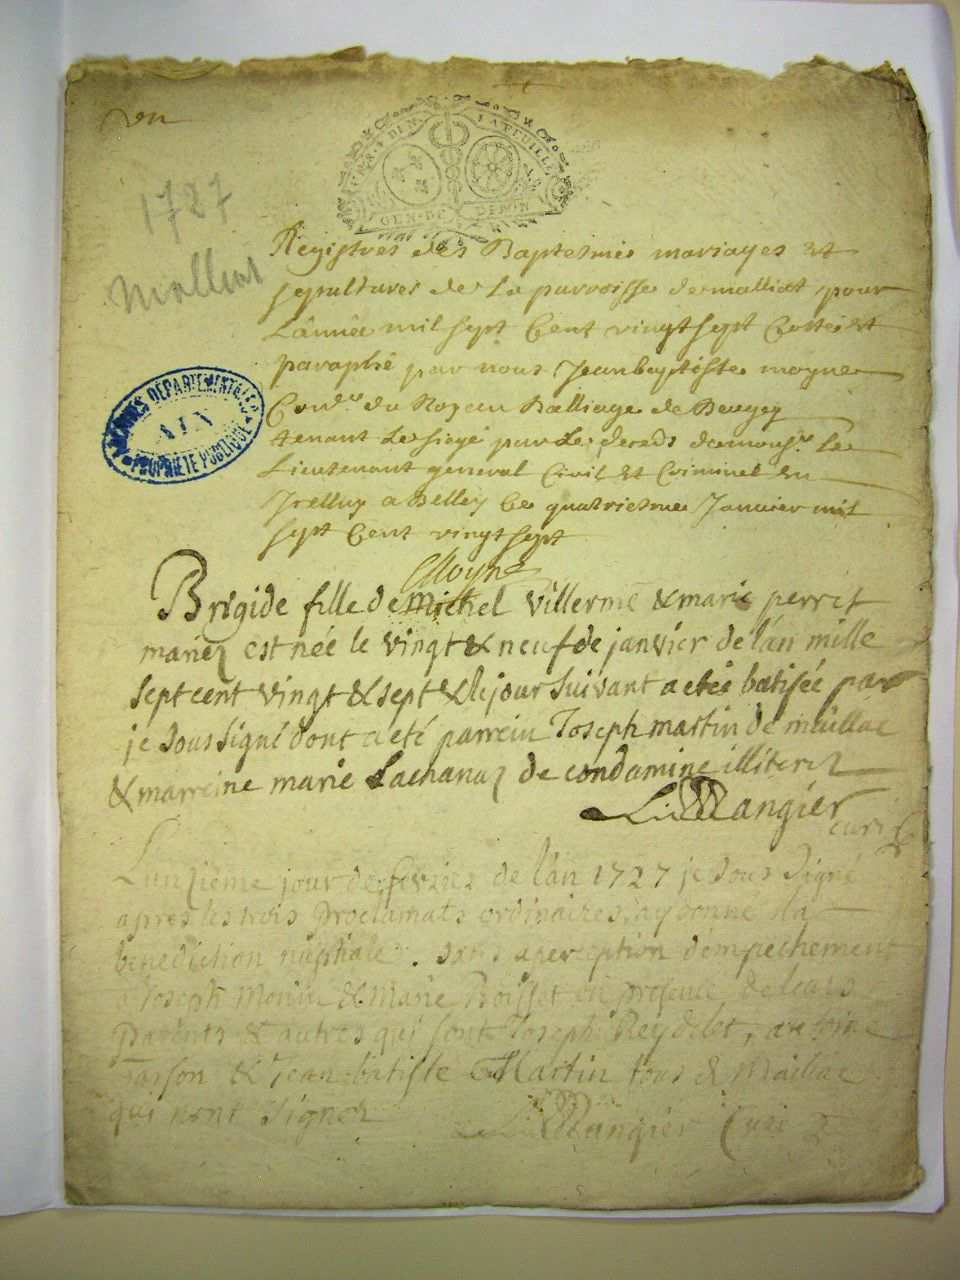 un
LA FEUILLE
GEN. DE DIJON
1727
Malliat
ARCHIVES DÉPARTEMENTALES
AIN
PROPRIÉTÉ PUBLIQUE
Registres des Baptesmes mariages et
sepultures de La parroisse de malliat pour
L'année mil sept Cent vingt sept Cotté et
paraphé par nous Jean baptiste moyne
du Bailliage de Beugey
tenant Le siege par
Lieutenant general Civil et Criminel
a Belley Ce quatrieme Janvier mil
sept Cent vingt sept
Moyne
Brigide fille de Michel Villerme & marie perret
mariez est née le vingt & neuf de janvier de l'an mille
sept cent vingt & sept & le jour suivant a eté batisée par
je soussigné dont a eté parrein Joseph martin de maillac
& marreine marie Lachanaz de condamine illiterez
Mangier
curé
L'unzième jour de fevrier de l'an 1727 je sous signé
apres les trois proclamats ordinaires ay donné la
benediction nuptiale . sans aperception d'empechement
a Joseph Monin & Marie Roisset en presence de leurs
Parents & autres qui sont Joseph Reydelet, antoine
& Jean batiste Martin tous de Maillac
qui n'ont signer
Mangier Curé